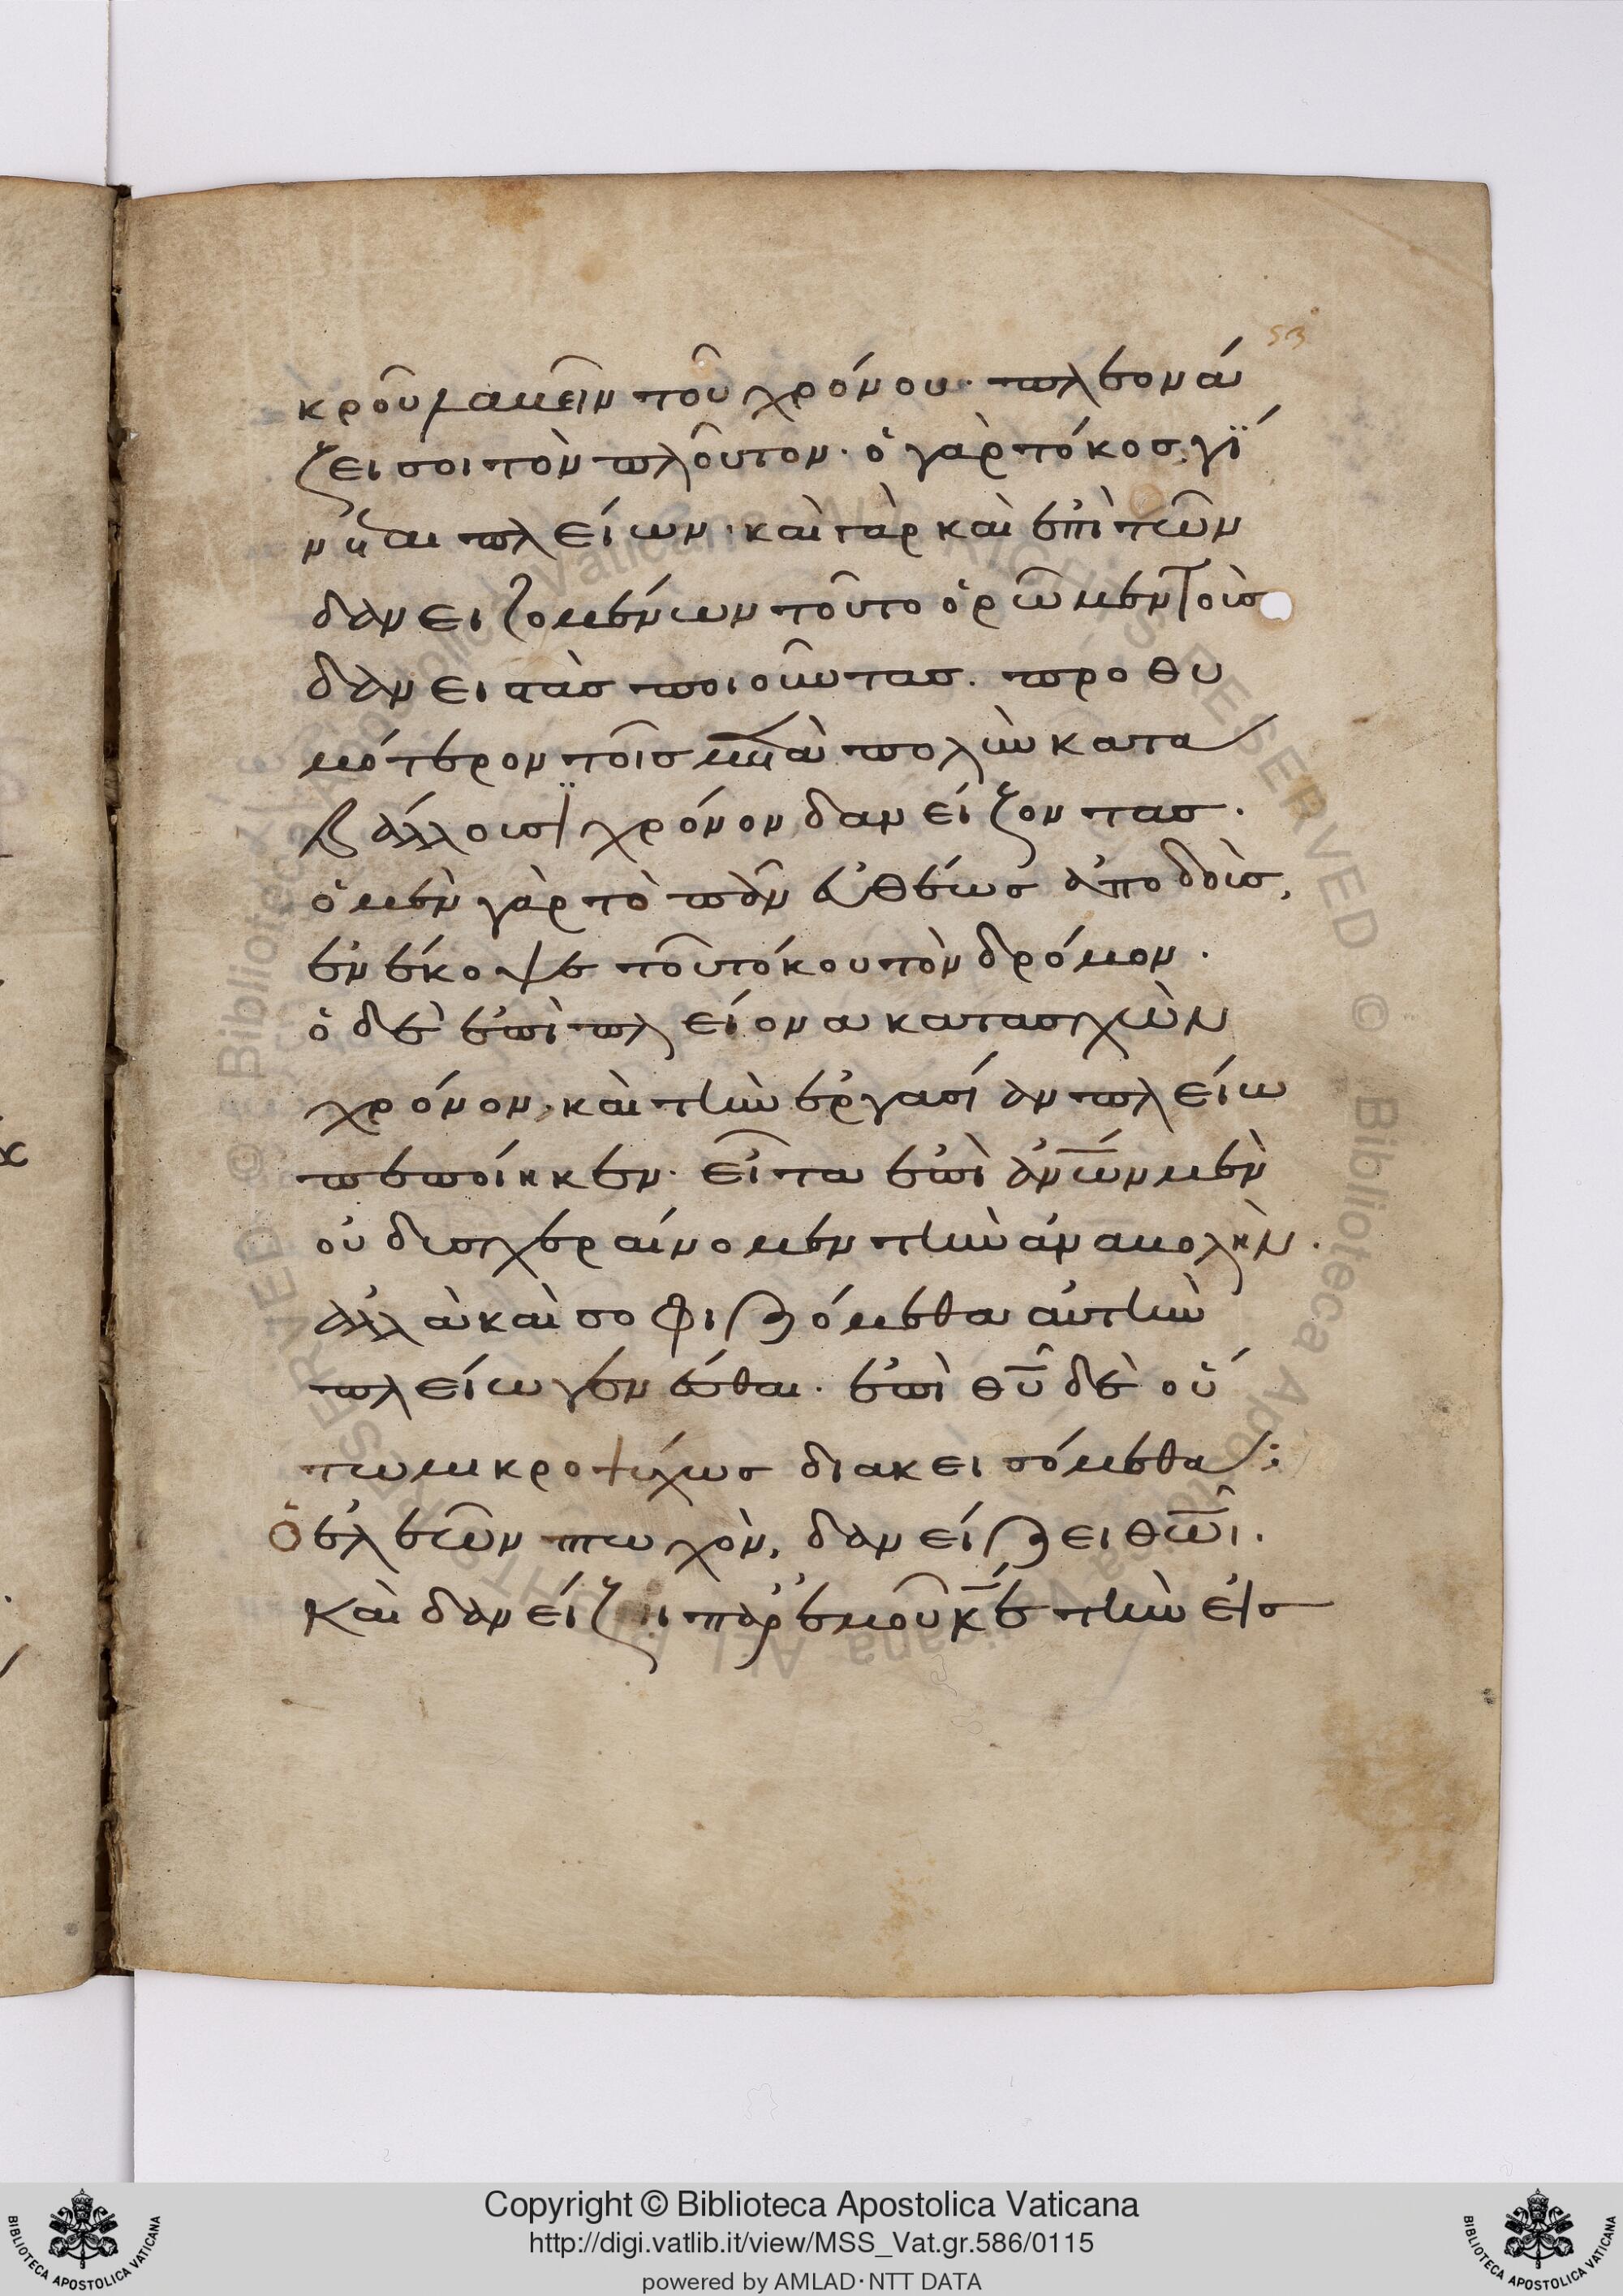 53
κροῦ μακεῖν τοῦ χρόνου· πλεονά
ζει σοι τὸν πλοῦτον· ὁ γὰρ τόκος, γί
νεται πλείων· καὶ γὰρ καὶ ἐπὶ τῶν
δανειζομένων τοῦτο ὁρῶμεν τοὺς
δανειστὰς ποιοῦντας. προθυ
μότερον τοῖς μετὰ πολὺν κατα
βάλλουσι χρόνον δανείζοντας.
ὁ μὲν γὰρ τὸ πᾶν εὐθέως ἀποδοὺς,
ἐνέκοψε τοῦ τόκου τὸν δρόμον.
ὁ δὲ ἐπὶ πλείονα κατασχὼν
χρόνον, καὶ τὴν ἐργασίαν πλείω
πεποίηκεν. εἶτα ἐπὶ ἀνων μὲν
οὐ δυσχεραίνομεν τὴν ἀναβολὴν.
ἀλλὰ καὶ σοφιζόμεθα αὐτὴν
πλείω γενέσθαι. ἐπὶ θυ δὲ οὕ
τω μικροψύχως διακεισόμεθα;
Ὁ ἐλεῶν πτωχὸν, δανείζει θωι.
καὶ δανείζει παρ' ἐμοῦ κε τὴν εἰσ
Copyright © Biblioteca Apostolica Vaticana
http://digi.vatlib.it/view/MSS_Vat.gr.586/0115
powered by AMLAD·NTT DATA
BIBLIOTECA APOSTOLICA VATICANA
BIBLIOTECA APOSTOLICA VATICANA